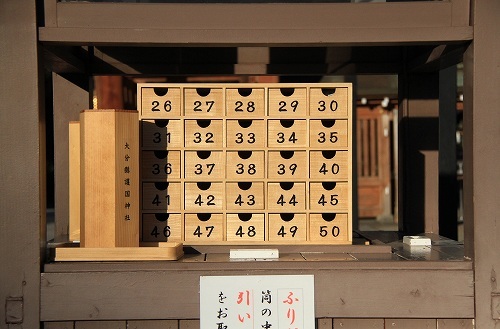 26 27 28 29 30
31 32 33 34 35
36 37 38 39 40
41 42 43 44 45
46 47 48 49 50
大分縣護国神社
ふり
筒の中
引い
をお取